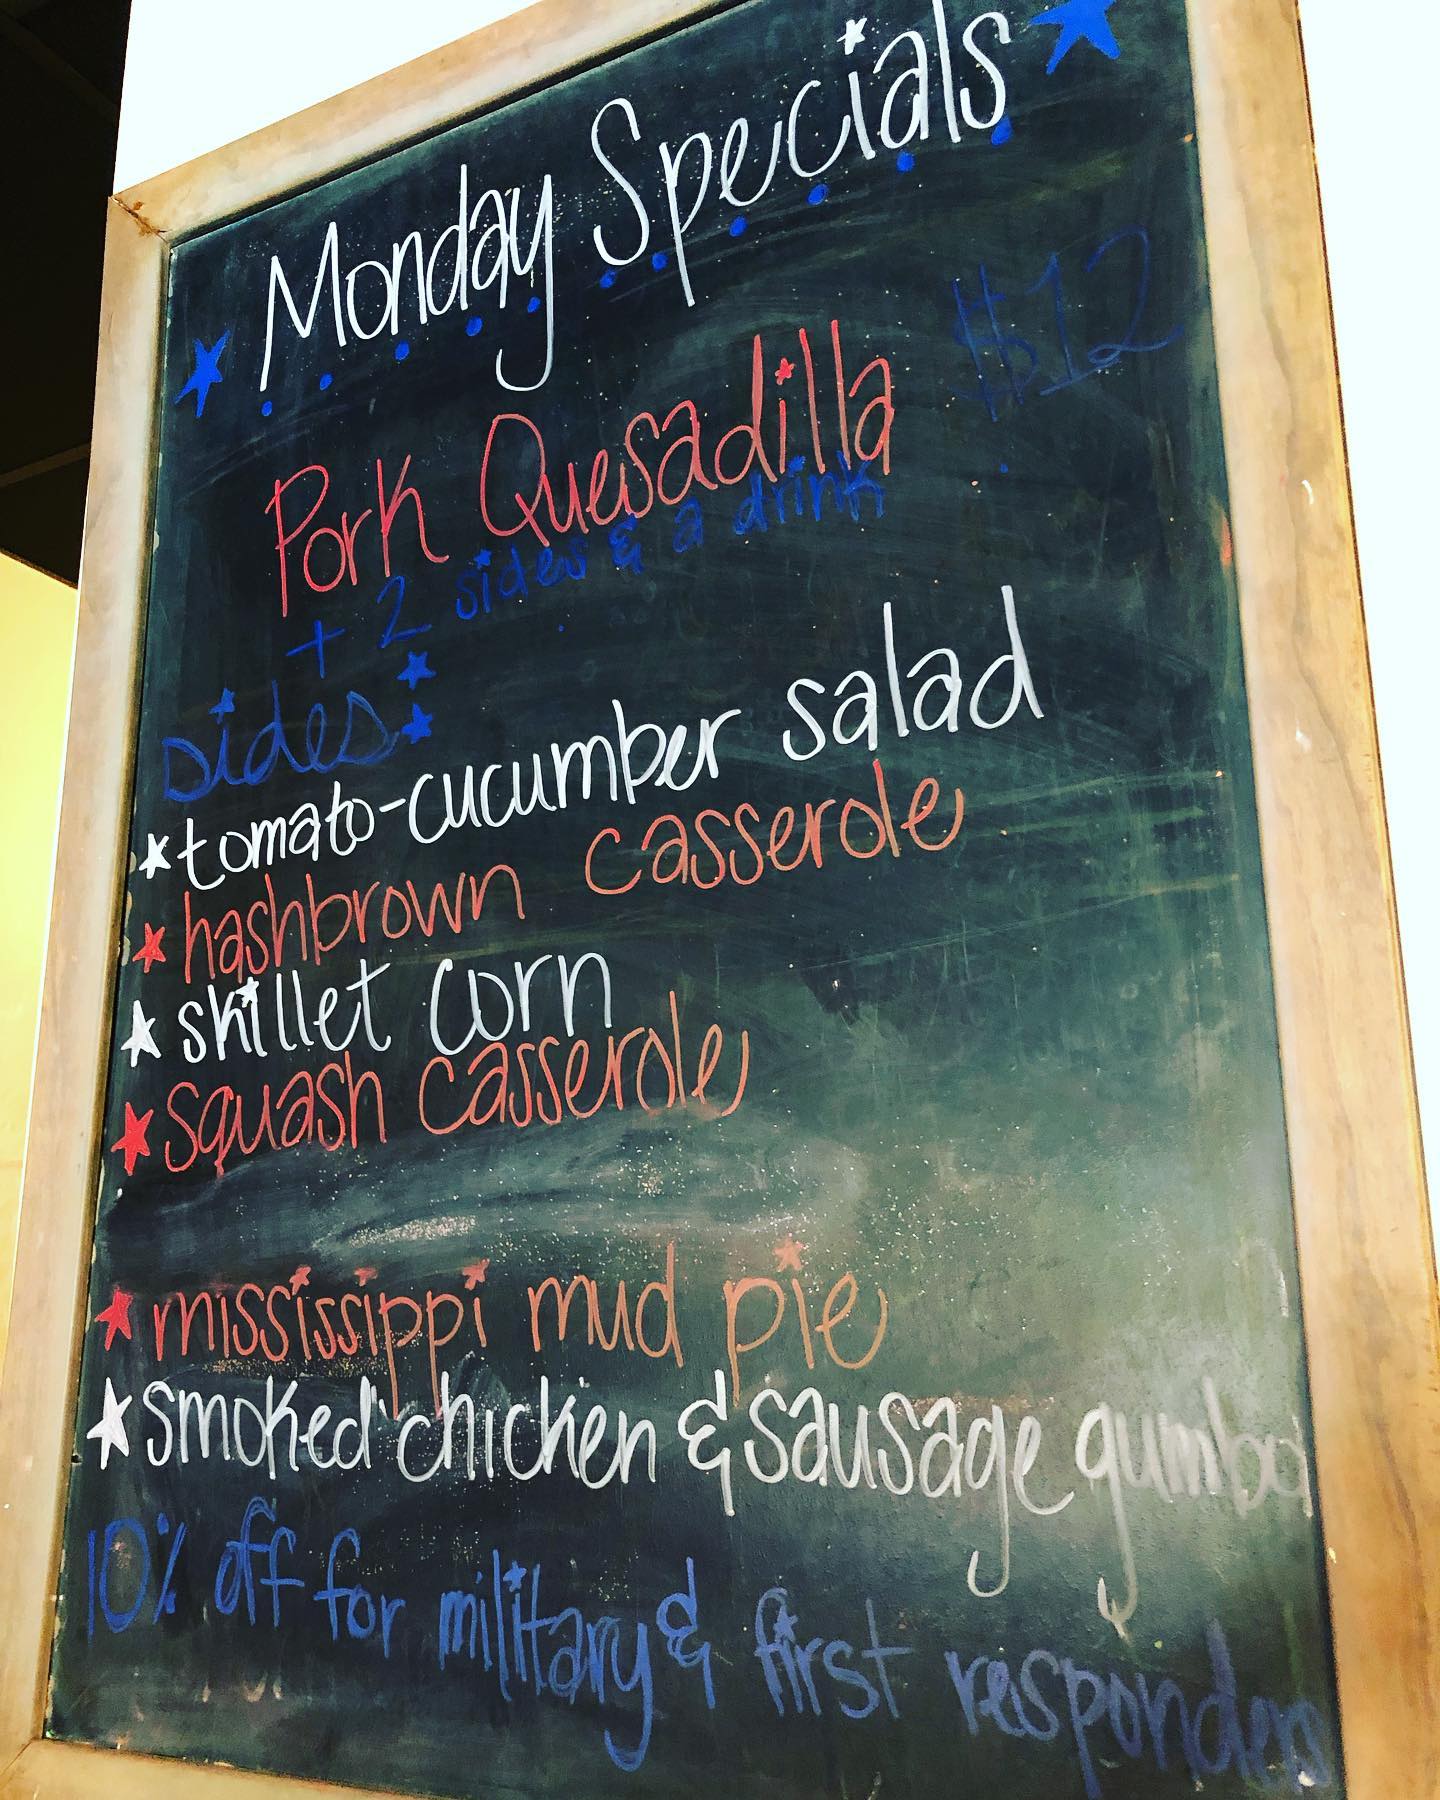 Monday Specials
Pork Quesadilla $12
+ 2 sides & a drink
sides:
tomato-cucumber salad
hashbrown casserole
skillet corn
squash casserole
mississippi mud pie
smoked chicken & sausage gumbo
10% off for military & first responders